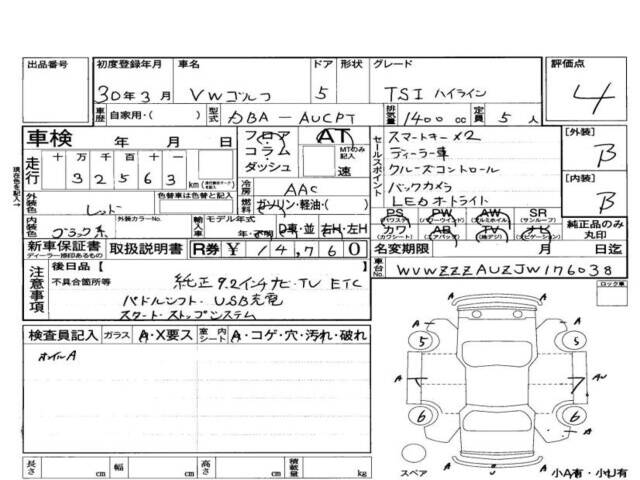 出品番号 初度登録年月 車名 ドア 形状 グレード 評価点
30年3月 VWゴルフ 5 TSI ハイライン 4
車歴 自家用・( ) 型式 DBA-AUCPT 排気量 1400 cc 定員 5 人
車検 年 月 日 フロア コラム ダッシュ AT MTのみ記入 速
走行 十 万 千 百 十 一
3 2 5 6 3 km
冷房 AAC
外装色 レッド 色替車は色替と記入
燃料 ガソリン・軽油・( )
内装色 ブラック系 外装カラーNo. 輸入車 モデル年式 D車・並 右H・左H
セールスポイント
スマートキー×2
ディーラー車
クルーズコントロール
バックカメラ
LEDオートライト
[外装] B
[内装] B
PS (パワステ) PW (パワーウインド) AW (アルミホイル) SR (サンルーフ)
カワ (カワシート) AB (エアバッグ) TV (地デジ) ナビ (ナビゲーション)
純正品のみ丸印
新車保証書 取扱説明書 R券 ¥ 14,760 名変期限 月 日
ディーラー捺印あるもの
車台No. WVWZZZAUZJW176038
注意事項
後日品 [ ]
不具合箇所等 純正9.2インチナビ・TV ETC
パドルシフト・USB充電
スタート・ストップシステム
ロック車
検査員記入 ガラス A・X要ス 室内シート A・コゲ・穴・汚れ・破れ
ホイルA
A A
5 5
A A
6 6
A U
スペア
小A有・小U有
長さ cm 幅 cm 高さ cm 積載量 kg